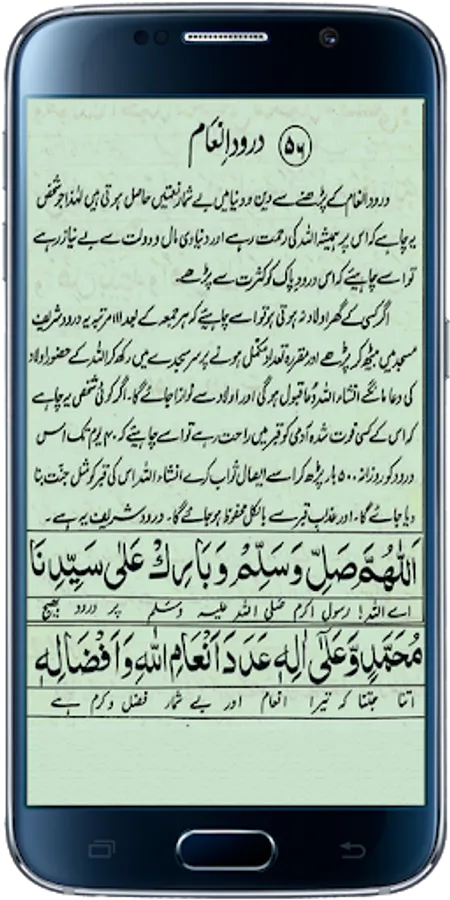 ۵۶ درود انعام
درود انعام کے پڑھنے سے دین و دنیا میں بے شمار نعمتیں حاصل ہوتی ہیں لہٰذا جو شخص
یہ چاہے کہ اس پر ہمیشہ اللہ کی رحمت رہے اور دنیاوی مال و دولت سے بے نیاز رہے
تو اسے چاہیئے کہ اس درود پاک کو کثرت سے پڑھے۔
اگر کسی کے گھر اولاد نہ ہوتی ہو تو اسے چاہیئے کہ ہر جمعہ کے بعد ۱۱۱ مرتبہ یہ درود شریف
مسجد میں بیٹھ کر پڑھے اور مقررہ تعداد مکمل ہونے پر سر سجدے میں رکھ کر اللہ کے حضور اولاد
کی دعا مانگے انشاء اللہ دُعا قبول ہوگی اور اولاد سے نوازا جائے گا۔ اگر کوئی شخص یہ چاہے
کہ اس کے کسی فوت شدہ آدمی کو قبر میں راحت رہے تو اسے چاہیئے کہ ۴۰ یوم تک اس
درود کو روزانہ ۵۰۰ بار پڑھ کر اسے ایصال ثواب کرے انشاء اللہ اس کی قبر کو مثل جنت بنا
دیا جائے گا۔ اور عذاب قبر سے بالکل محفوظ ہو جائے گا۔ درود شریف یہ ہے۔
اَللّٰهُمَّ صَلِّ وَسَلِّمْ وَبَارِكْ عَلٰى سَيِّدِنَا
اے اللہ! رسول اکرم صلی اللہ علیہ وسلم پر درود بھیج
مُحَمَّدٍ وَّعَلٰٓى اٰلِهٖ عَدَدَ اَنْعَامِ اللّٰهِ وَاَفْضَالِهٖ
اتنا جتنا کہ تیرا انعام اور بے شمار فضل و کرم ہے